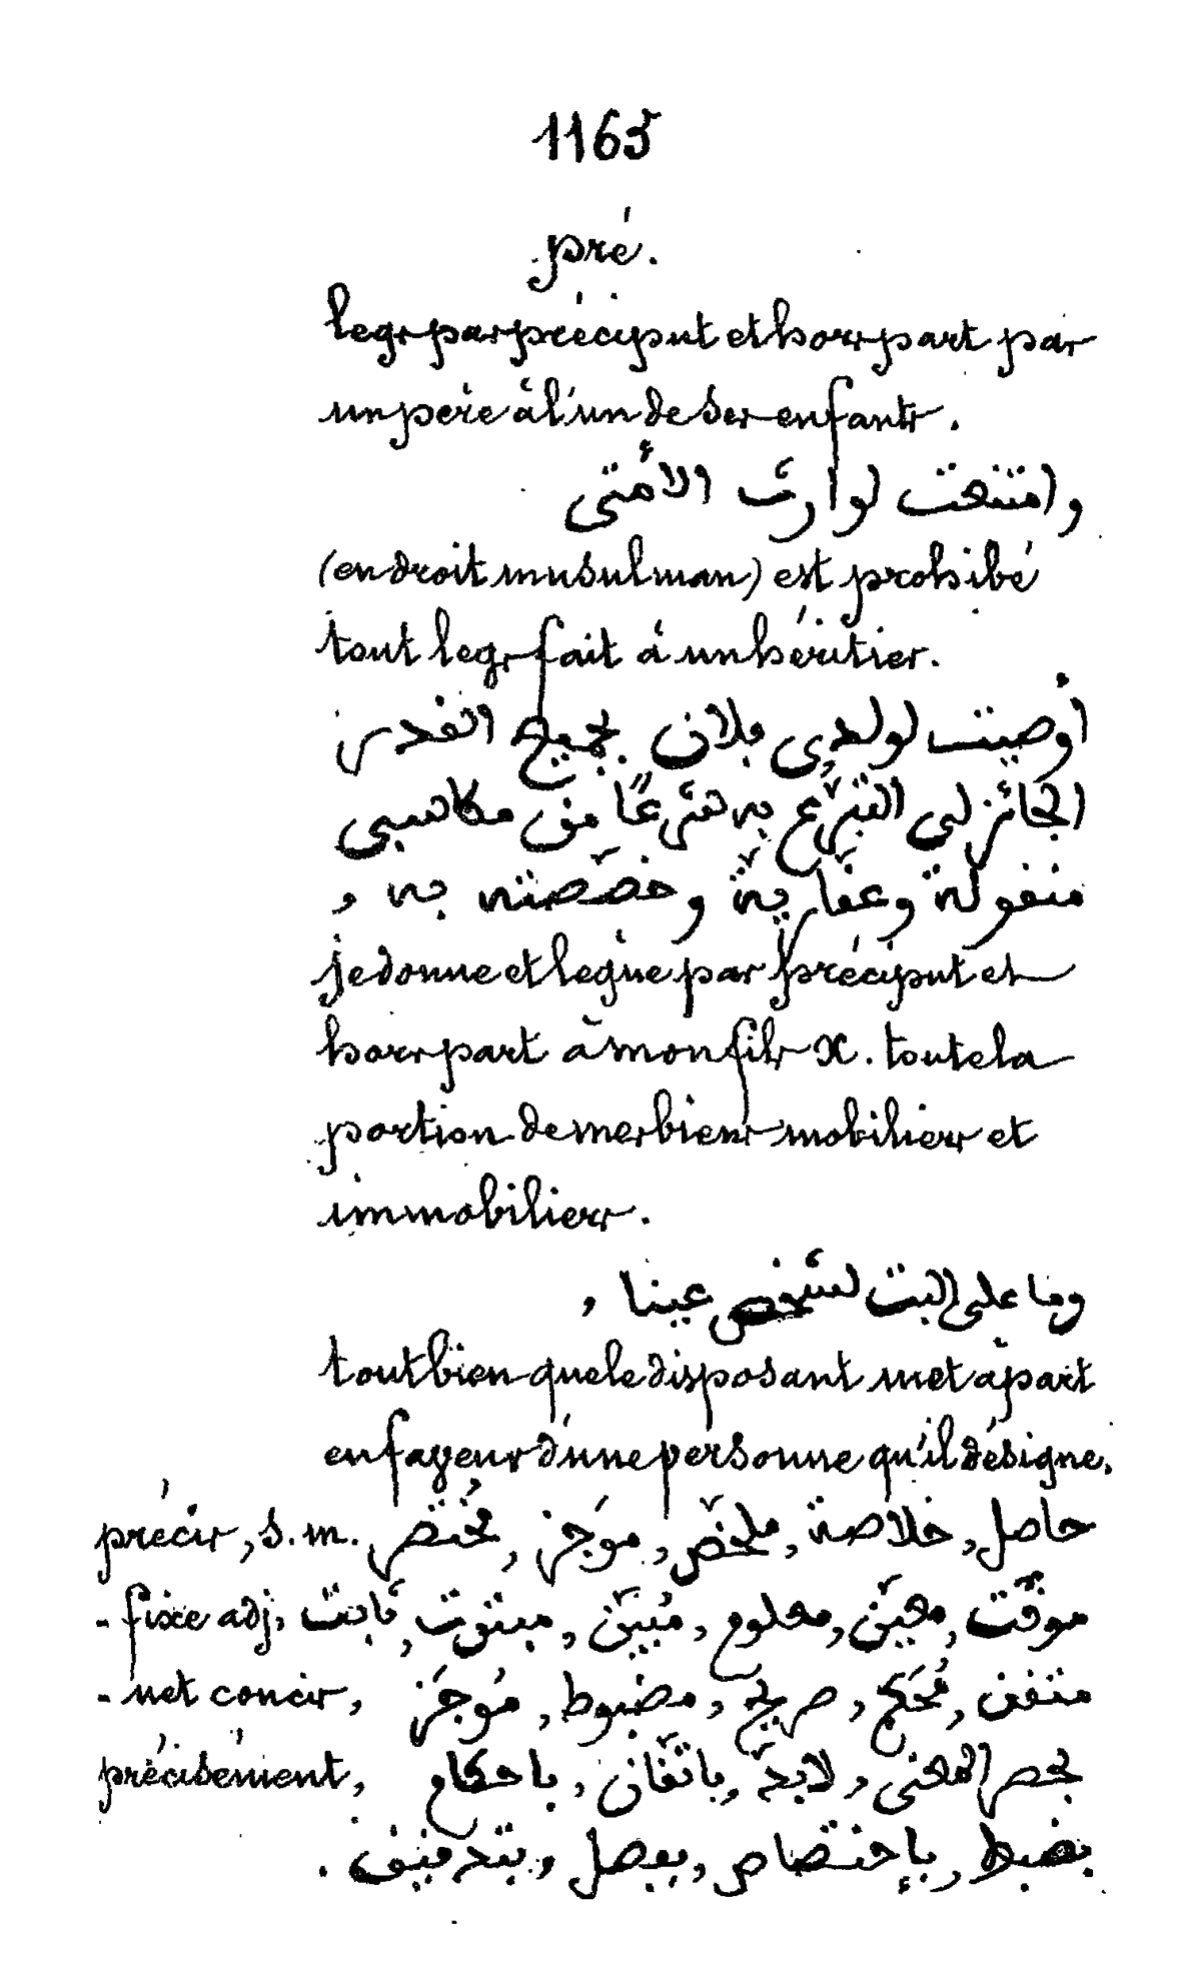 1165
pré.
legs par préciput et hors part par
un père à l'un de ses enfants.
وامتنعت لوارث الأمتى
(en droit musulman) est prohibé
tout legs fait à un héritier.
أوصيت لولدي ڢلان بجميع الفدر
الجائز لي التبرّع به تبرّعًا من مكاسبي
منفولة وعفّاريّة وخصّصته به ,
je donne et lègue par préciput et
hors part à mon fils X. toute la
portion de mes biens mobiliers et
immobiliers.
وما على البت لشخص عينا ,
tout bien que le disposant met à part
en faveur d'une personne qu'il désigne.
précis, s. m. حاصل, خلاصة, ملخّص, موَجز, مُختصر
- fixe adj. موفّت, معيّن, معلوم, مُبيّن, مبتوت, ثابت
- net concis, متفن, مُحكم, صريح, مضبوط, مُوجَز
précisément, بحصر المعنى, لابدّ, باتّفان, باحكام,
بضبط, بإختصاص, بڢصل, بتدفيف.